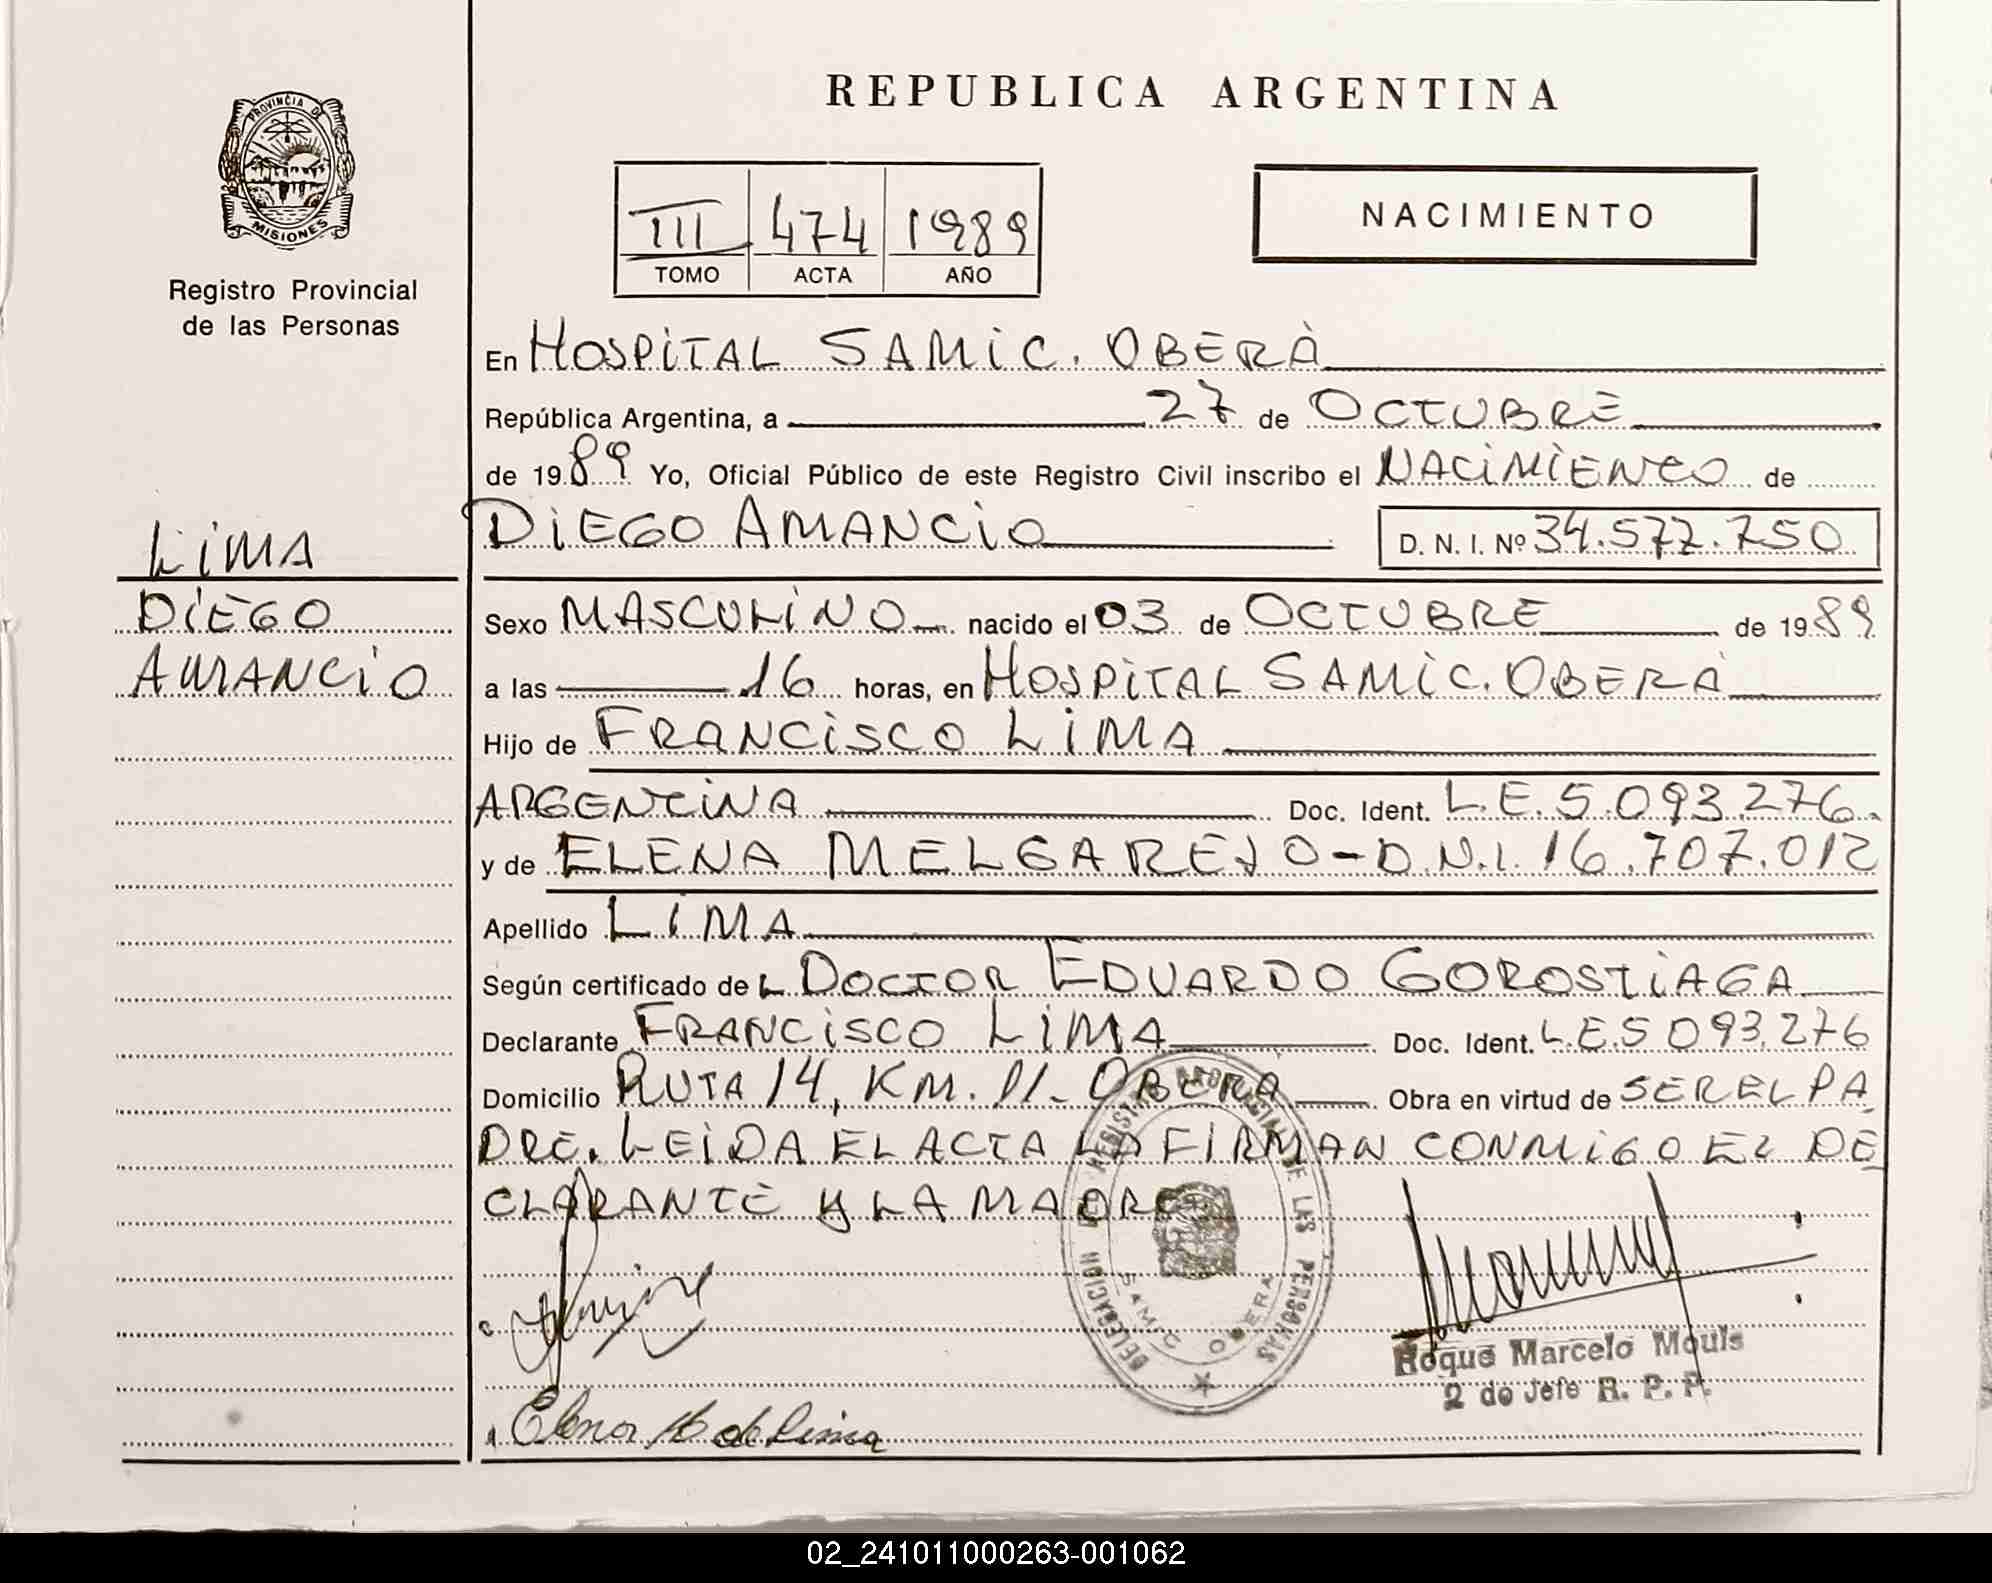 REPUBLICA ARGENTINA
PROVINCIA DE
MISIONES
Registro Provincial
de las Personas
III 474 1989
TOMO ACTA AÑO
NACIMIENTO
En HOSPITAL SAMIC. OBERÀ
República Argentina, a 27 de OCTUBRE
de 1989 Yo, Oficial Público de este Registro Civil inscribo el NACIMIENTO de
DIEGO AMANCIO D. N. I. Nº 34.577.750
LIMA
DIEGO
AMANCIO
Sexo MASCULINO nacido el 03 de OCTUBRE de 1989
a las 16 horas, en HOSPITAL SAMIC. OBERA
Hijo de FRANCISCO LIMA
ARGENTINA Doc. Ident. L.E. 5.093.276.
y de ELENA MELGAREJO - D.N.I. 16.707.012
Apellido LIMA
Según certificado de L DOCTOR EDUARDO GOROSTIAGA
Declarante FRANCISCO LIMA Doc. Ident. L.E.5 093.276
Domicilio RUTA 14, KM. 11 - OBERA Obra en virtud de SER EL PA
DRE. LEIDA EL ACTA LA FIRMAN CONMIGO EL DE
CLARANTE Y LA MADRE
DELEGACION DEL REGISTRO PROVINCIAL DE LAS PERSONAS
SAMIC OBERA
Roque Marcelo Mouls
2 do Jefe R. P. P.
Elena M de Lima
02_241011000263-001062